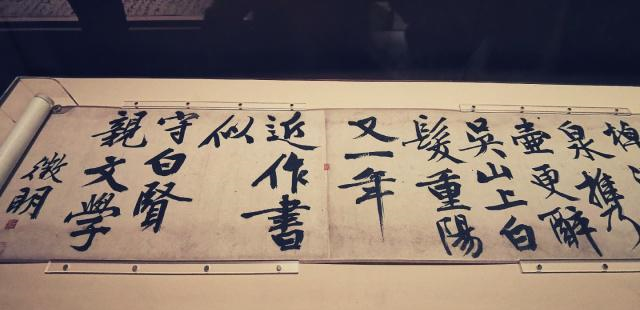 泉携
壺更醉
吳山上白
髮重陽
又一年
近作書
似
守白賢
親文學
徵明